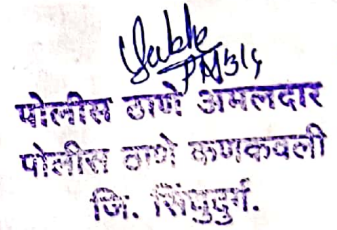 पोलीस ठाणे अमलदार
पोलीस ठाणे कणकवली
जि. सिंधुदुर्ग.